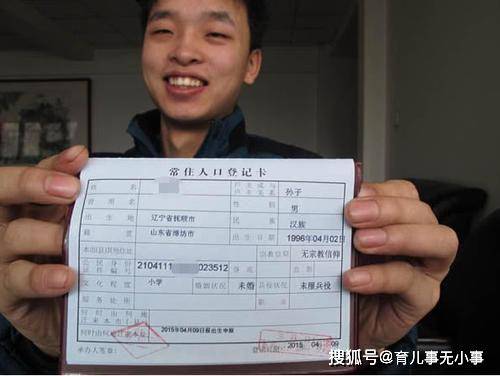 常住人口登记卡
姓名 户主或与户主关系 孙子
曾用名 性别 男
出生地 辽宁省抚顺市 民族 汉族
籍贯 山东省潍坊市 出生日期 1996年04月02日
本市县其他住址 宗教信仰 无宗教信仰
公民身份证件编号 2104111 023512 身高 血型
文化程度 小学 婚姻状况 未婚 兵役状况 未服兵役
服务处所 职业
何时由何地迁来本市(县)
何时由何地迁来本址 2015年04月09日报出生申报
承办人签章: 登记日期: 2015 04月 09
搜狐号@育儿事无小事